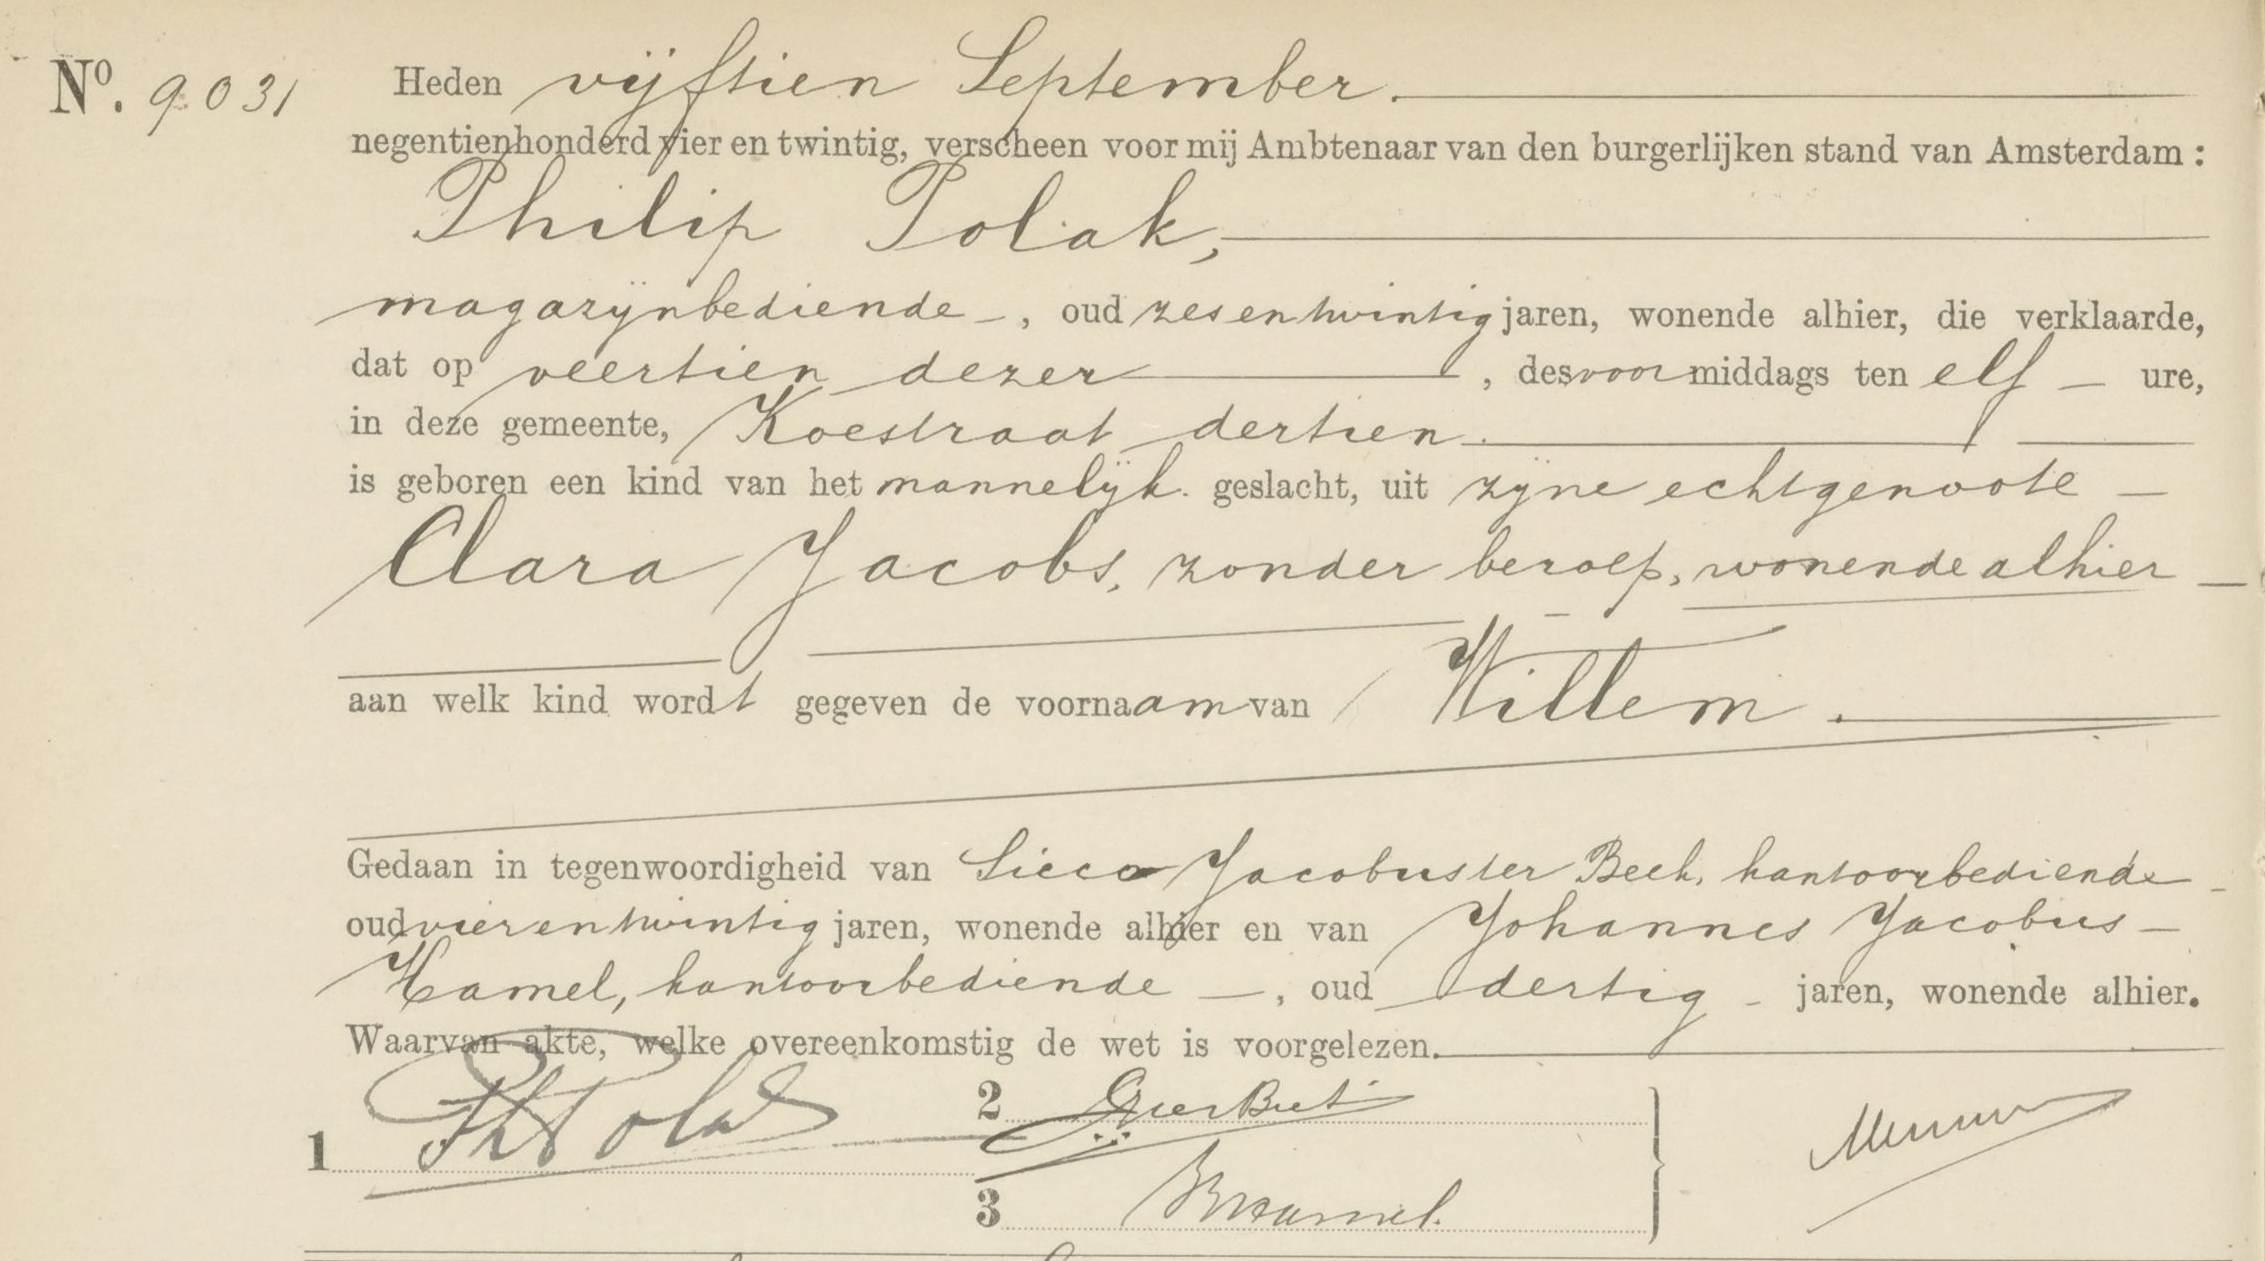 Nº. 9031 Heden vijftien September.
negentienhonderd vier en twintig, verscheen voor mij Ambtenaar van den burgerlijken stand van Amsterdam:
Philip Polak,
magazijnbediende, oud zesentwintig jaren, wonende alhier, die verklaarde,
dat op veertien dezer, des voormiddags ten elf ure,
in deze gemeente, Koestraat dertien.
is geboren een kind van het mannelijk geslacht, uit zijne echtgenoote
Clara Jacobs, zonder beroep, wonende alhier
aan welk kind wordt gegeven de voornaam van Willem.
Gedaan in tegenwoordigheid van Sicco Jacobus ter Beek, kantoorbediende
oud vierentwintig jaren, wonende alhier en van Johannes Jacobus
Hamel, kantoorbediende, oud dertig jaren, wonende alhier.
Waarvan akte, welke overeenkomstig de wet is voorgelezen.
1 Ph Polak
2
3